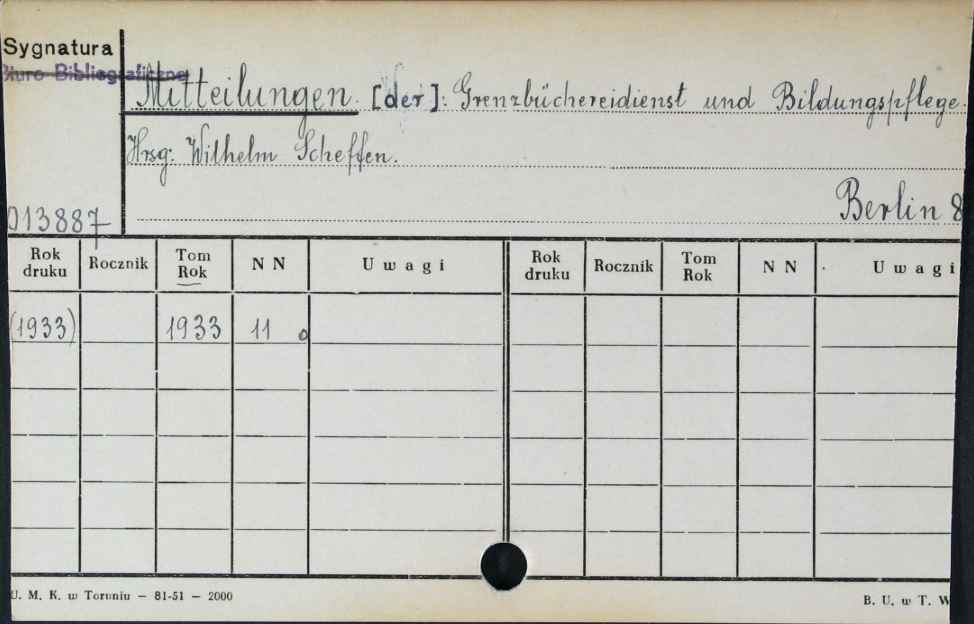 Sygnatura
Biuro Bibliograficzne
Mitteilungen [der]: Grenzbüchereidienst und Bildungspflege.
Hrsg: Wilhelm Scheffen.
Berlin 8
013887
Rok druku Rocznik Tom Rok N N Uwagi Rok druku Rocznik Tom Rok N N Uwagi
(1933) 1933 11
U. M. K. w Toruniu — 81-51 — 2000 B. U. w T. W